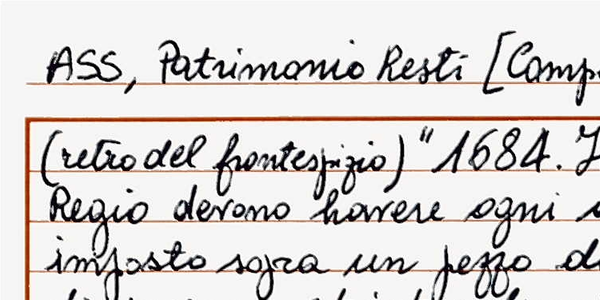 ASS, Patrimonio Resti [Comp
(retro del frontespizio) "1684.
Regio devono havere ogni
imposto sopra un pezzo